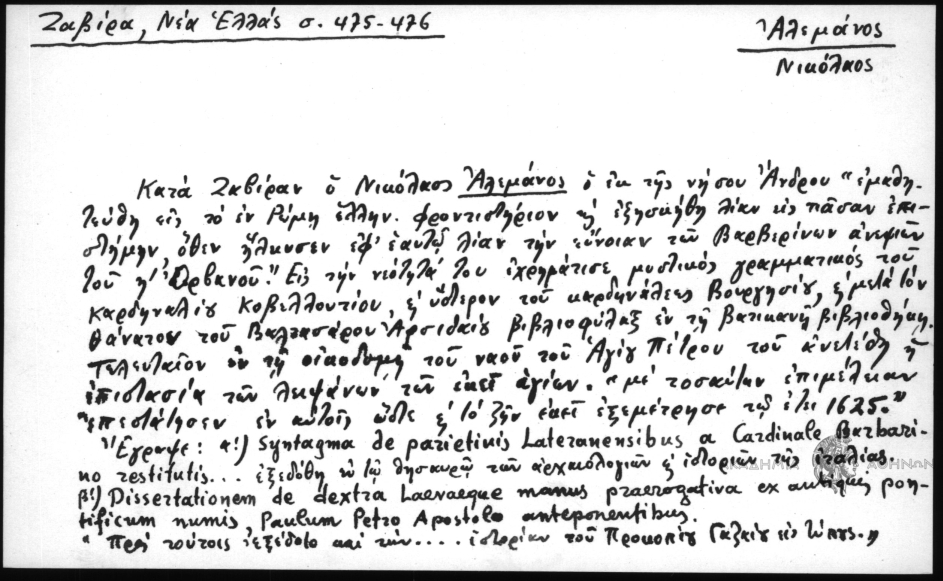 Ζαβίρα, Νέα Ἑλλάς σ. 475-476
Ἀλεμάνος
Νικόλαος
Κατά Ζαβίραν ὁ Νικόλαος Ἀλεμάνος ὁ ἐκ τῆς νήσου Ἄνδρου "ἐμαθη-
τεύθη εἰς τό ἐν Ρώμῃ ἑλλην. φροντιστήριον ἐξησκήθη λίαν εἰς πᾶσαν ἐπι-
στήμην, ὅθεν ἥλκυσεν ἐφ' ἑαυτῷ λίαν τήν εὔνοιαν τῶν Βαρβερίνων ἀνεψιῶν
τοῦ η' Οὐρβανοῦ." Εἰς τήν νεότητά του ἐχρημάτισε μυστικός γραμματικός τοῦ
καρδηναλίου Κοβελλουτίου, ὕστερον τοῦ καρδηνάλεως Βουργησίου, μετά τόν
θάνατον τοῦ Βαλτασάρου Ἀρσιδαίου βιβλιοφύλαξ ἐν τῇ Βατικανῇ βιβλιοθήκῃ.
Τελευταῖον ἐν τῇ οἰκοδομῇ τοῦ ναοῦ τοῦ Ἁγίου Πέτρου τοῦ ἀνετέθη ἡ
ἐπιστασία τῶν λειψάνων τῶν ἐκεῖ ἁγίων. "μέ τοσαύτην ἐπιμέλειαν
ἐπεστάτησεν ἐν αὐτοῖς ὥστε τό ζῆν ἐκεῖ ἐξεμέτρησε τῷ ἔτει 1625."
"Ἔγραψε: α!) Syntagma de parietinis Lateranensibus a Cardinale Barbari-
no restitutis... ἐξεδόθη ἐν τῷ θησαυρῷ τῶν ἀρχαιολογιῶν ἱστοριῶν τῆς ἰταλίας.
β!) Dissertationem de dextra Laevaeque manus praerogativa ex antiquis pon-
tificum numis, Paulum Petro Apostolo anteponentibus.
"Πρός τούτοις ἐξέδοτο καί τήν.... ἱστορίαν τοῦ Προκοπίου Γαζαίου εἰς
ΑΚΑΔΗΜΙΑ ΑΘΗΝΩΝ